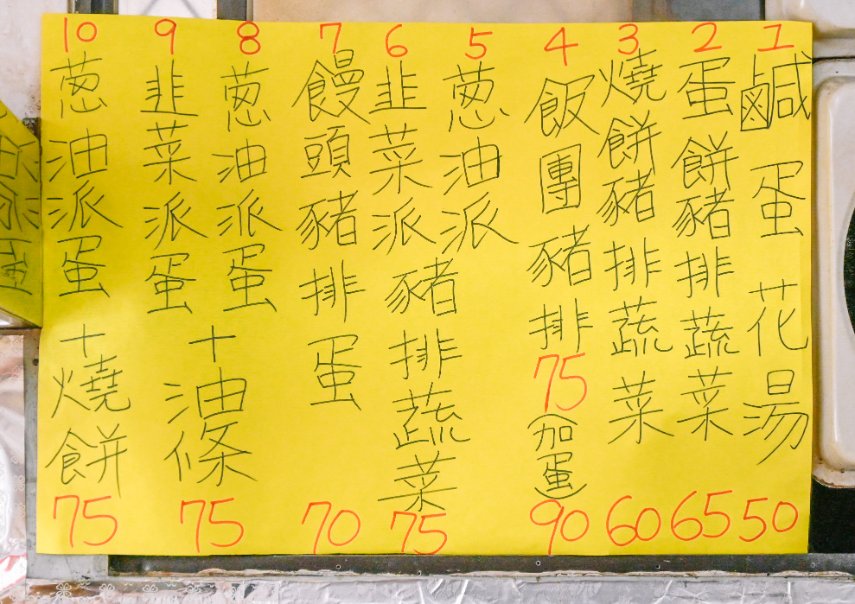 1 鹹蛋花湯 50
2 蛋餅豬排蔬菜 65
3 燒餅豬排蔬菜 60
4 飯團豬排 75 (加蛋) 90
5 葱油派
6 韭菜派豬排蔬菜 75
7 饅頭豬排蛋 70
8 葱油派蛋
9 韭菜派蛋
+油條 75
10 葱油派蛋+燒餅 75